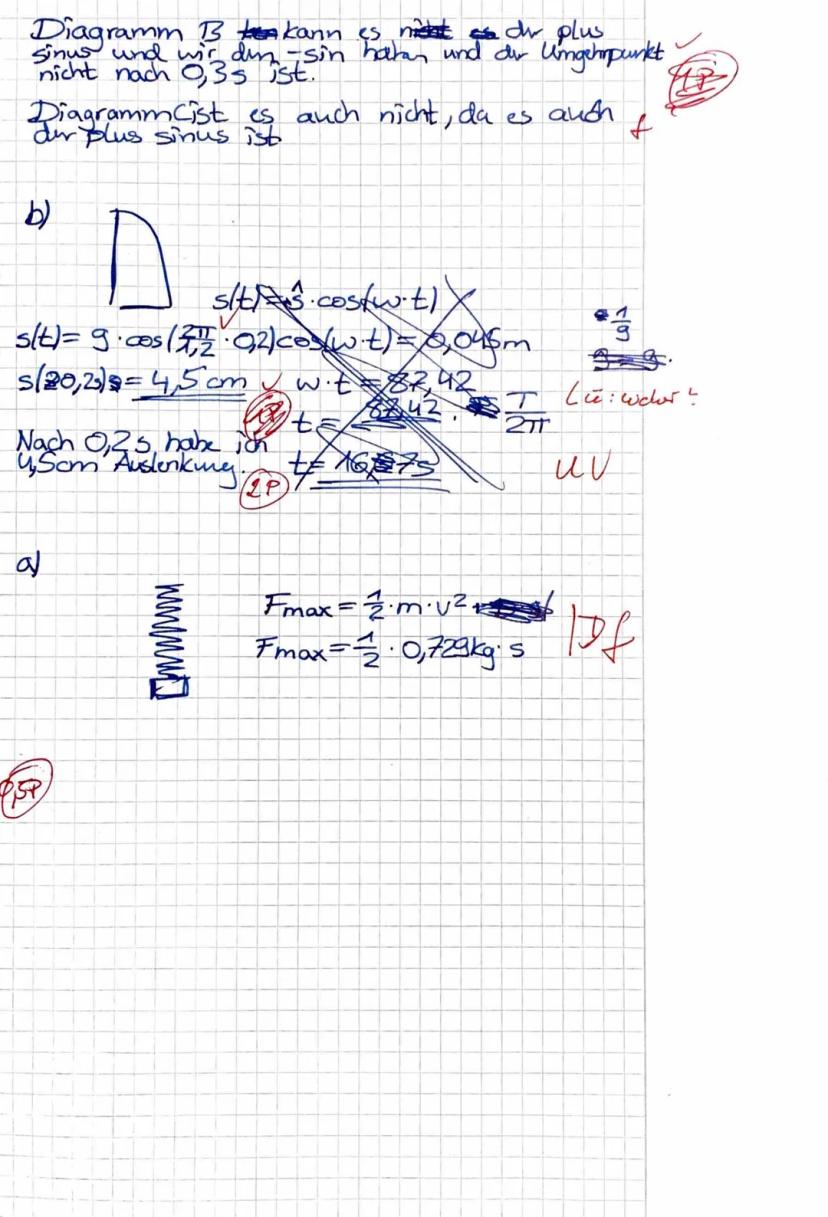 Diagramm B kann es nicht es der plus
sinus und wir den -sin haben und der Umgehrpunkt ✓
nicht nach 0,3s ist.
1P
Diagramm C ist es auch nicht, da es auch f
der plus sinus ist
b)
s(t) = ŝ · cos(w·t)
s(t) = 9 · cos(2π/1,2 · 0,2) cos(w·t) = 0,045m
1/9
9 = 9.
s(0,2)s = 4,5cm ✓ w·t = 87,42
1P
t = 87,42 · T/2π
Nach 0,2s habe ich
4,5cm Auslenkung. t = 16,7s
2P
UV
a)
Fmax = 1/2 · m · v²
Fmax = 1/2 · 0,729kg · s
Df